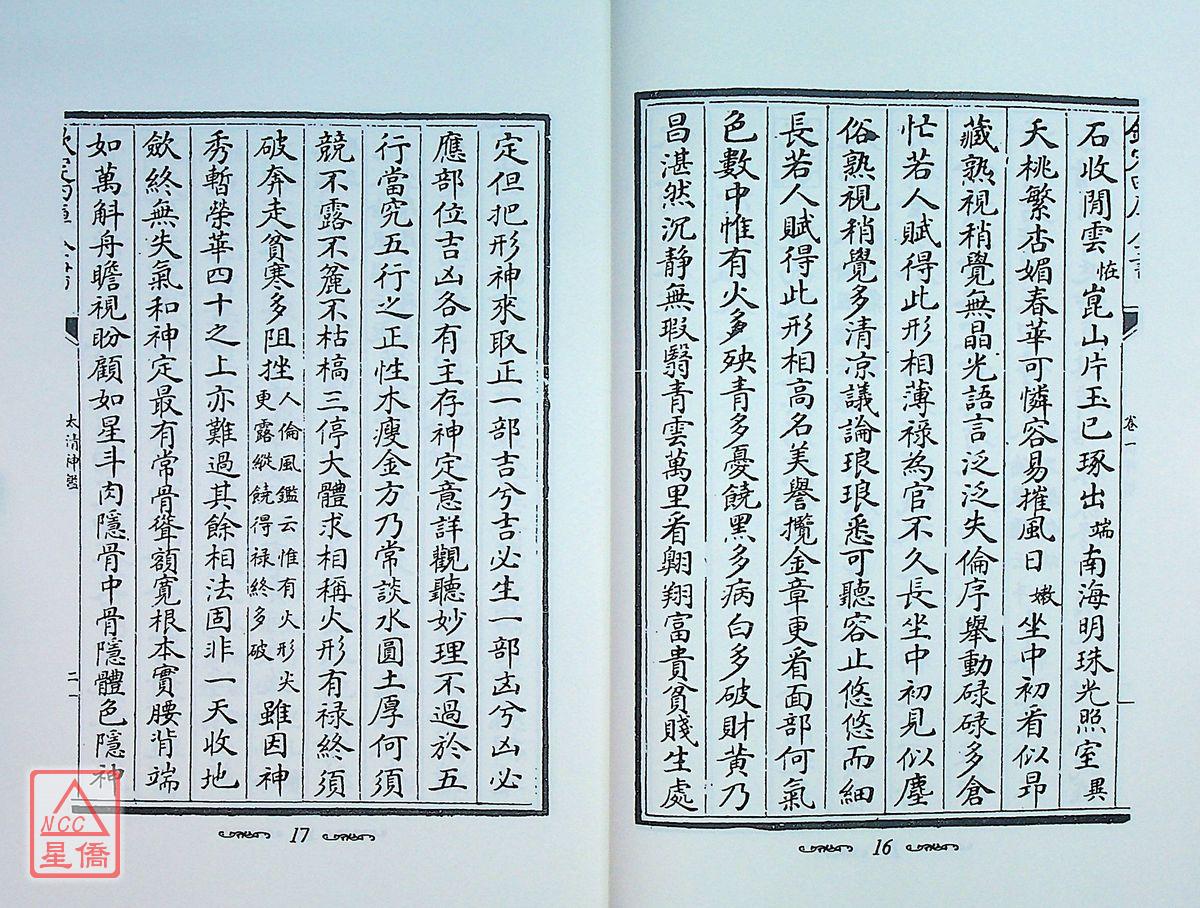 石收閒雲怪崑山片玉已琢出端南海明珠光照室異
夭桃繁杏媚春華可憐容易摧風日嫩坐中初看似昂
藏熟視稍覺無晶光語言泛泛失倫序舉動碌碌多倉
忙若人賦得此形相薄祿為官不久長坐中初見似塵
俗熟視稍覺多清凉議論琅琅悉可聽容止悠悠而細
長若人賦得此形相高名美譽攬金章更看面部何氣
色數中惟有火多殃青多憂饒黑多病白多破財黃乃
昌湛然沉静無瑕翳青雲萬里看翺翔富貴貧賤生處
卷一
16
定但把形神來取正一部吉兮吉必生一部凶兮凶必
應部位吉凶各有主存神定意詳觀聽妙理不過於五
行當究五行之正性木瘦金方乃常談水圓土厚何須
競不露不麄不枯槁三停大體求相稱火形有禄終須
破奔走貧寒多阻挫人倫風鑑云惟有火形尖更露縱饒得禄終多破雖因神
秀暫榮華四十之上亦難過其餘相法固非一天收地
歛終無失氣和神定最有常骨聳額寬根本實腰背端
如萬斛舟瞻視盼顧如星斗肉隱骨中骨隱體色隱神
太清神鑑
17
NCC
星僑